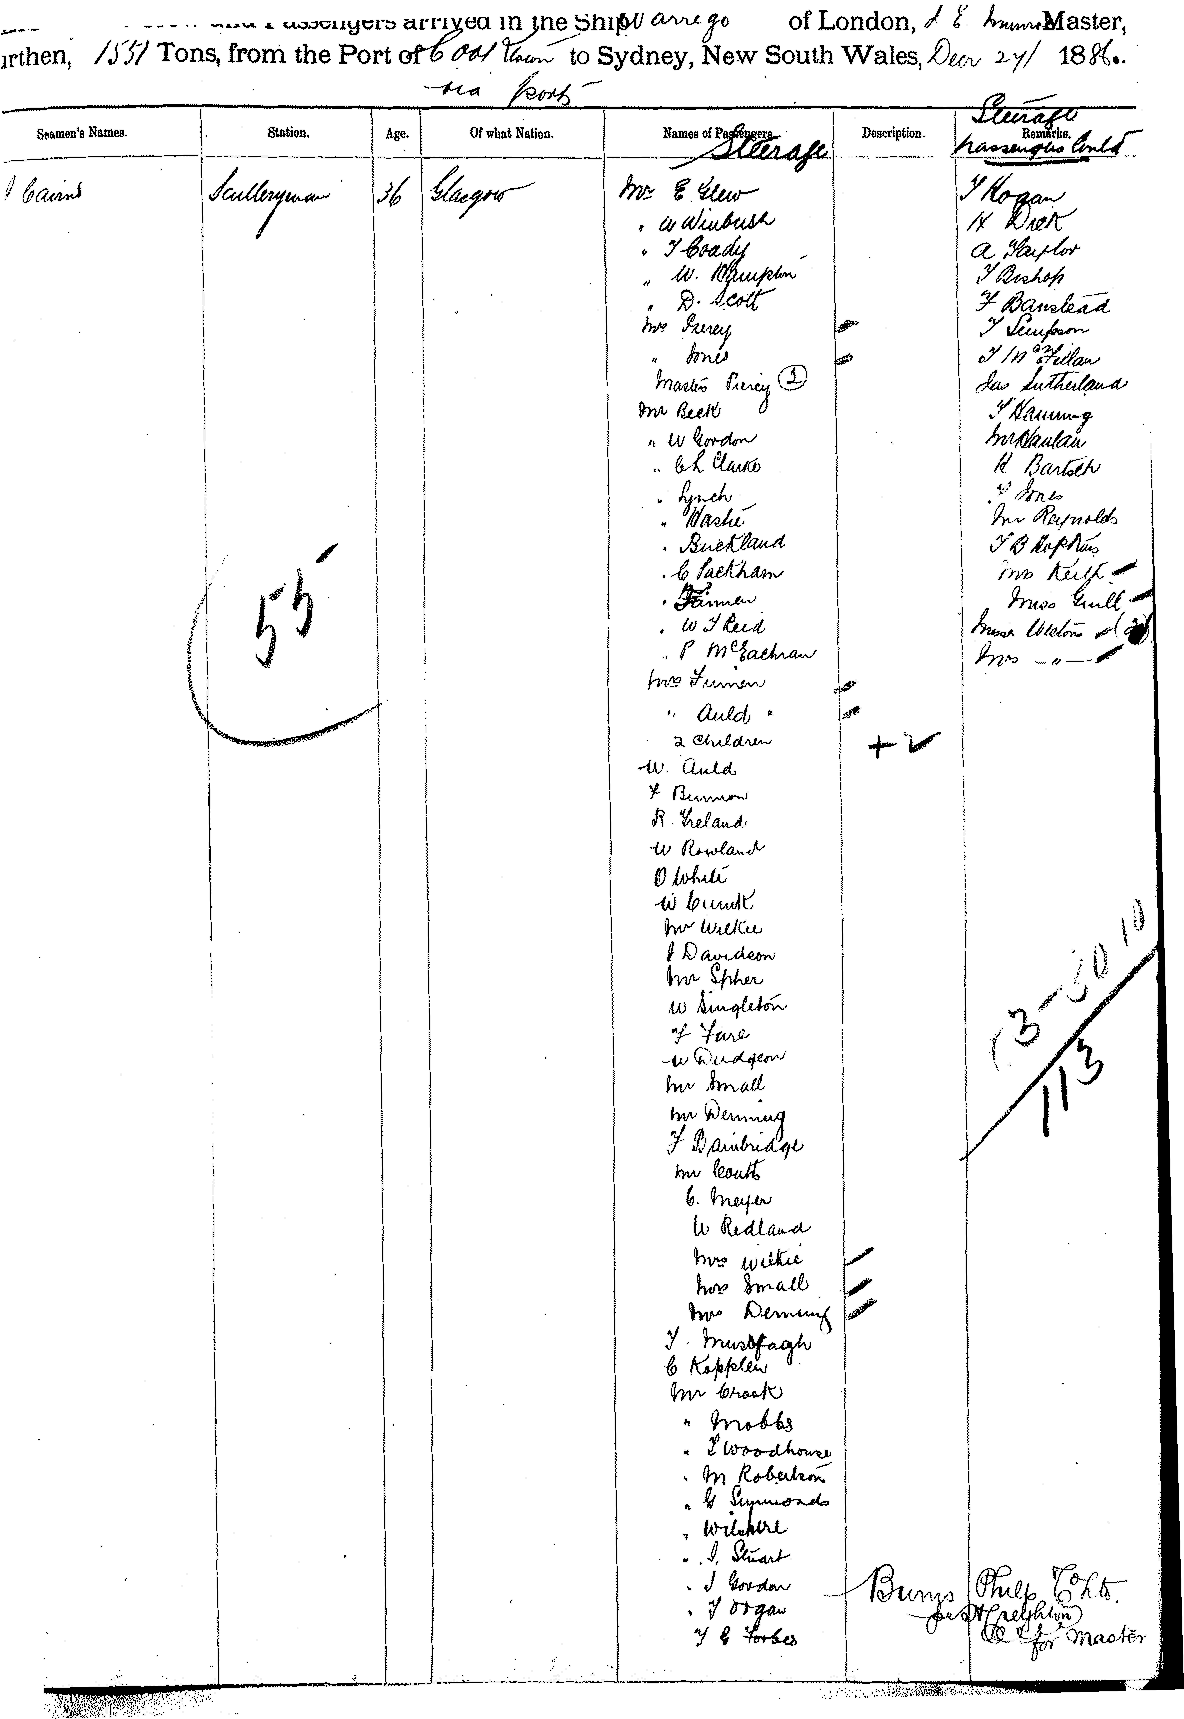 and Passengers arrived in the Ship Warrego of London, J E Master,
urthen, 1551 Tons, from the Port of Cooktown to Sydney, New South Wales, Decr 24/ 1886.
via ports
Seamen's Names. Station. Age. Of what Nation. Names of Passengers. Description. Remarks.
Steerage
Steerage
passengers Contd
J Cairns Sculleryman 36 Glasgow
Mr E Glew
" W Winbush
" T Coady
" W. Wampton
" D. Scott
Mrs Piercy
" Jones
Masters Piercy 2
Mr Beck
" W Gordon
" C L Clarke
" Lynch
" Haste
" Buckland
" C Packham
" W J Reid
" P McEachran
Mrs
" Auld "
2 Children
+2
W. Auld
R. Ireland
W Rowland
O White
W
Mr Wilkie
J Davidson
Mr Spher
W Singleton
W Dudgeon
Mr Small
Mr Deming
F Bainbridge
Mr Coutts
C. Meyer
W Redland
Mrs Wilkie
Mrs Small
Mrs Deming
C Kopplen
Mr Crook
" Mobbs
" T Woodhouse
" M Robertson
" G Symmonds
" Wilshire
" J. Stuart
" J Gordon
" T Organ
T G Forbes
T Hogan
H Dick
A Taylor
T Bishop
F Banstead
T Simpson
Jas Sutherland
Mr Hanlan
H Bartsch
Jones
Mr Reynolds
T B Hopkins
Mrs Keith
Miss Gull
Mrs - " -
55
13-50 10
113
Burns Philp Co Ltd.
per Creighton
for Master